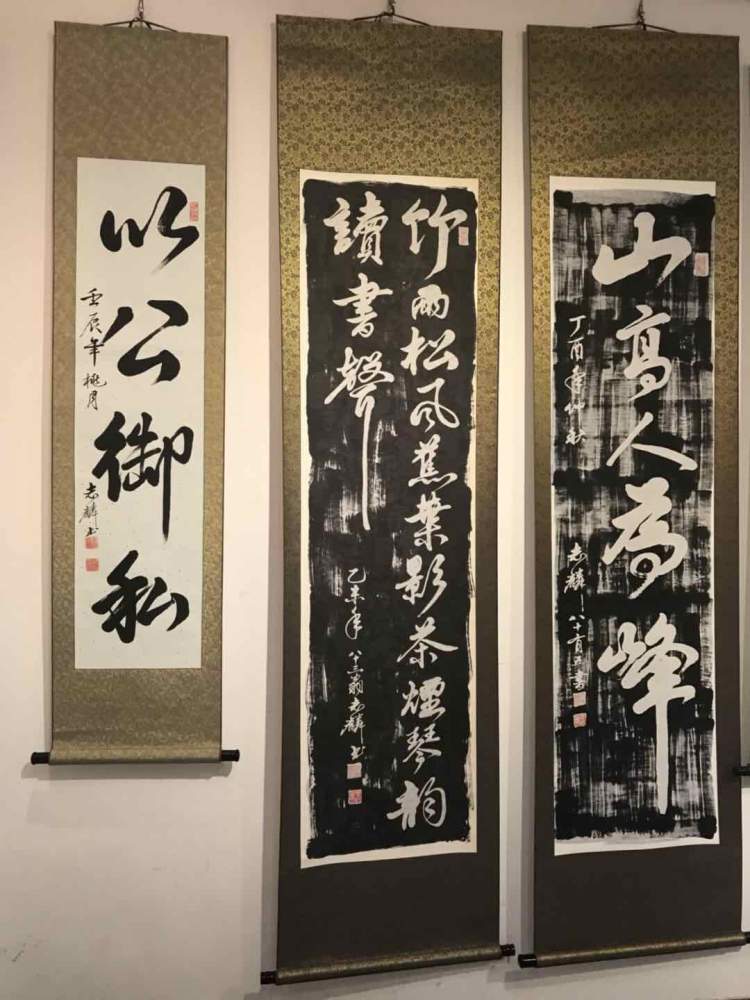 以公御私
壬辰年桃月
志麟书
竹雨松风蕉葉影茶煙琴韵
讀書聲
乙未年 八十三翁志麟书
山高人為峰
丁酉年仲秋 志麟 八十有五書